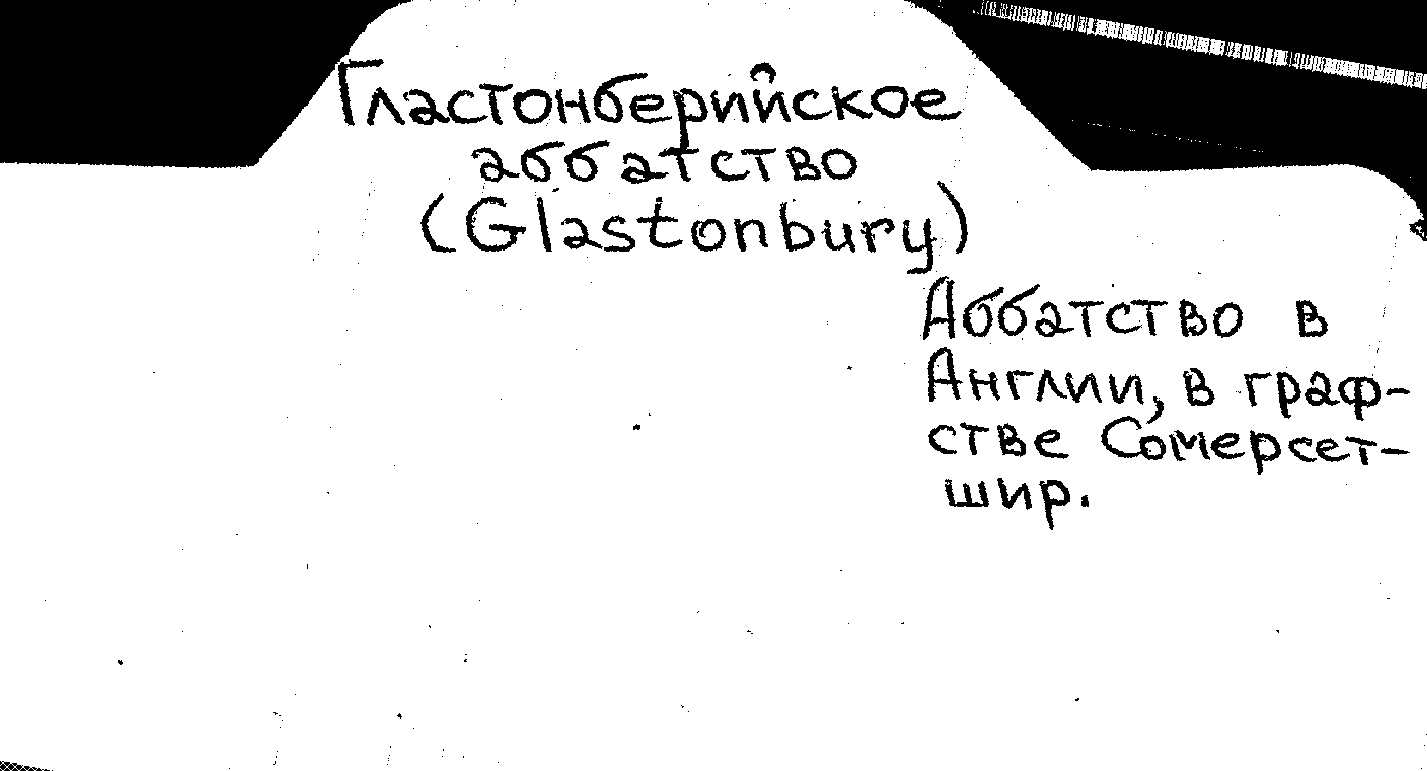 Гластонберийское
аббатство
(Glastonbury)
Аббатство в
Англии, в граф-
стве Сомерсет-
шир.